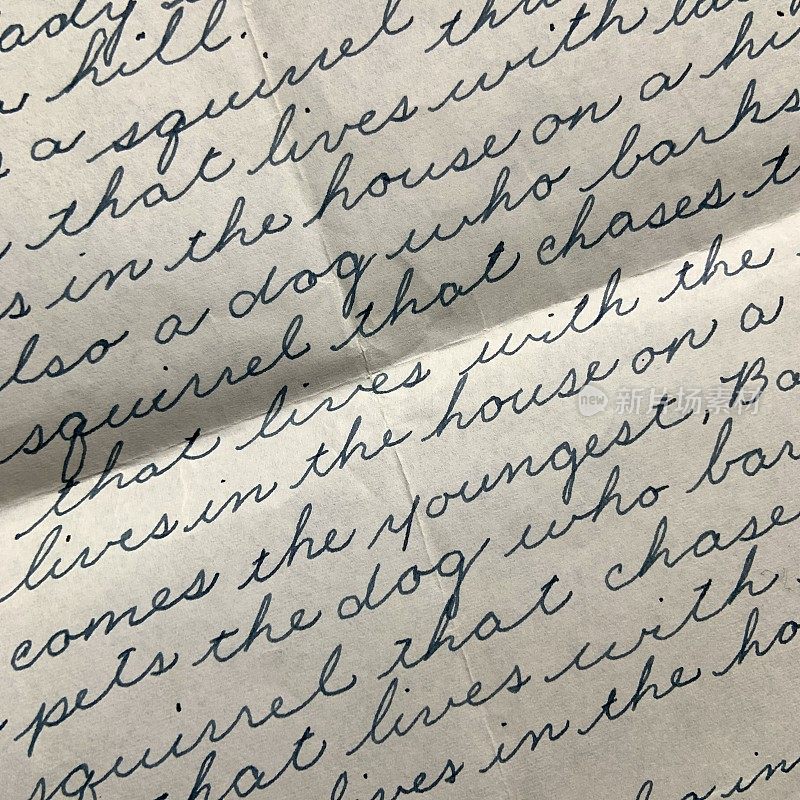 hill.
a squirrel
that lives with
s in the house on a hi
lso a dog who barks
squirrel that chases t
that lives with the
lives in the house on a
comes the youngest, Bo
pets the dog who bar
squirrel that chase
that lives with
lives in the ho
in
new 新片场素材